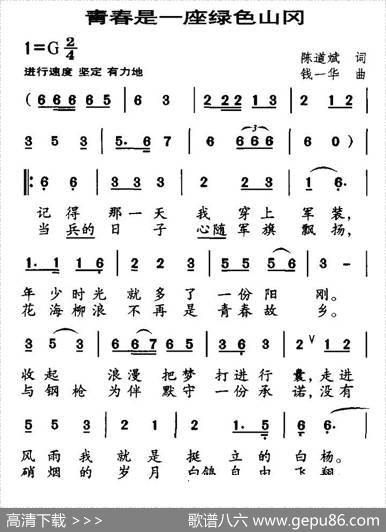 青春是一座绿色山冈
1=G 2/4
陈道斌 词
进行速度 坚定 有力地
钱一华 曲
(6 6 6 6 5 | 6 3 | 2 2 2 1 3 |
3 5 3 | 5. 6 7 | 6 6 6 6 | 6 0) |
6 6 | 3 3 3 | 2 2 3 | 1 6. |
记得 那一天 我 穿上 军装,
当兵的 日子 心随军旗 飘扬,
1. 1 1 6 | 2. 1 2 3 | 5 5 5 6 | 3 - |
年少时光 就多了 一份阳 刚。
花海柳浪 不再是 青春故 乡。
3 5 3 | 6 6 7 5 | 1. 1 1 3 | 2 V 1 2 |
收起 浪漫 把梦 打进行 囊,走进
与钢枪 为伴 默守 一份承 诺,没有
5 5 3 | 2 1 2 | 5. 5 5 6 |
风雨我 就是 挺 立的 白杨。
硝烟的 岁月 白鸽自由 飞翔
高清下载 >>>
歌谱八六 www.gepu86.com